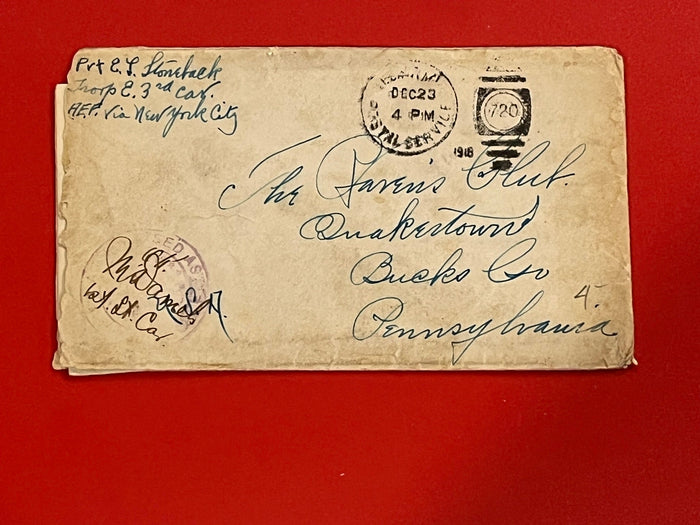 Pvt E. L. Stoneback
Troop E. 3rd Cav.
AEF. Via New York City
DEC 23
4 PM
POSTAL SERVICE
1918
720
The Ravens' Club.
Quakertown
Bucks Co
Pennsylvania
4
1st. Lt. Cav.